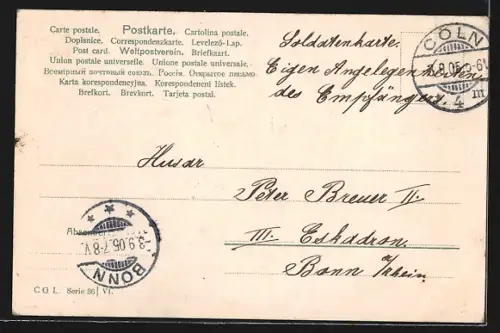 Carte postale. Postkarte. Cartolina postale.
Dopisnice. Correspondenzkarte. Levelező-Lap.
Post card. Weltpostverein. Briefkaart.
Union postale universelle. Unione postale universale.
Всемірный почтовый союзъ. Россія. Открытое письмо.
Karta korespondencyjna. Korespondent listek.
Brefkort. Brevkort. Tarjeta postal.
Soldatenkarte.
Eigen Angelegenheiten
des Empfängers.
CÖLN
8.05.5-6
4 m
Husar
Peter Breuer II.
III. Eskadron.
Bonn a/Rhein.
Absender
3.9.05.7-8V.
BONN
C O L Serie 36 VI.